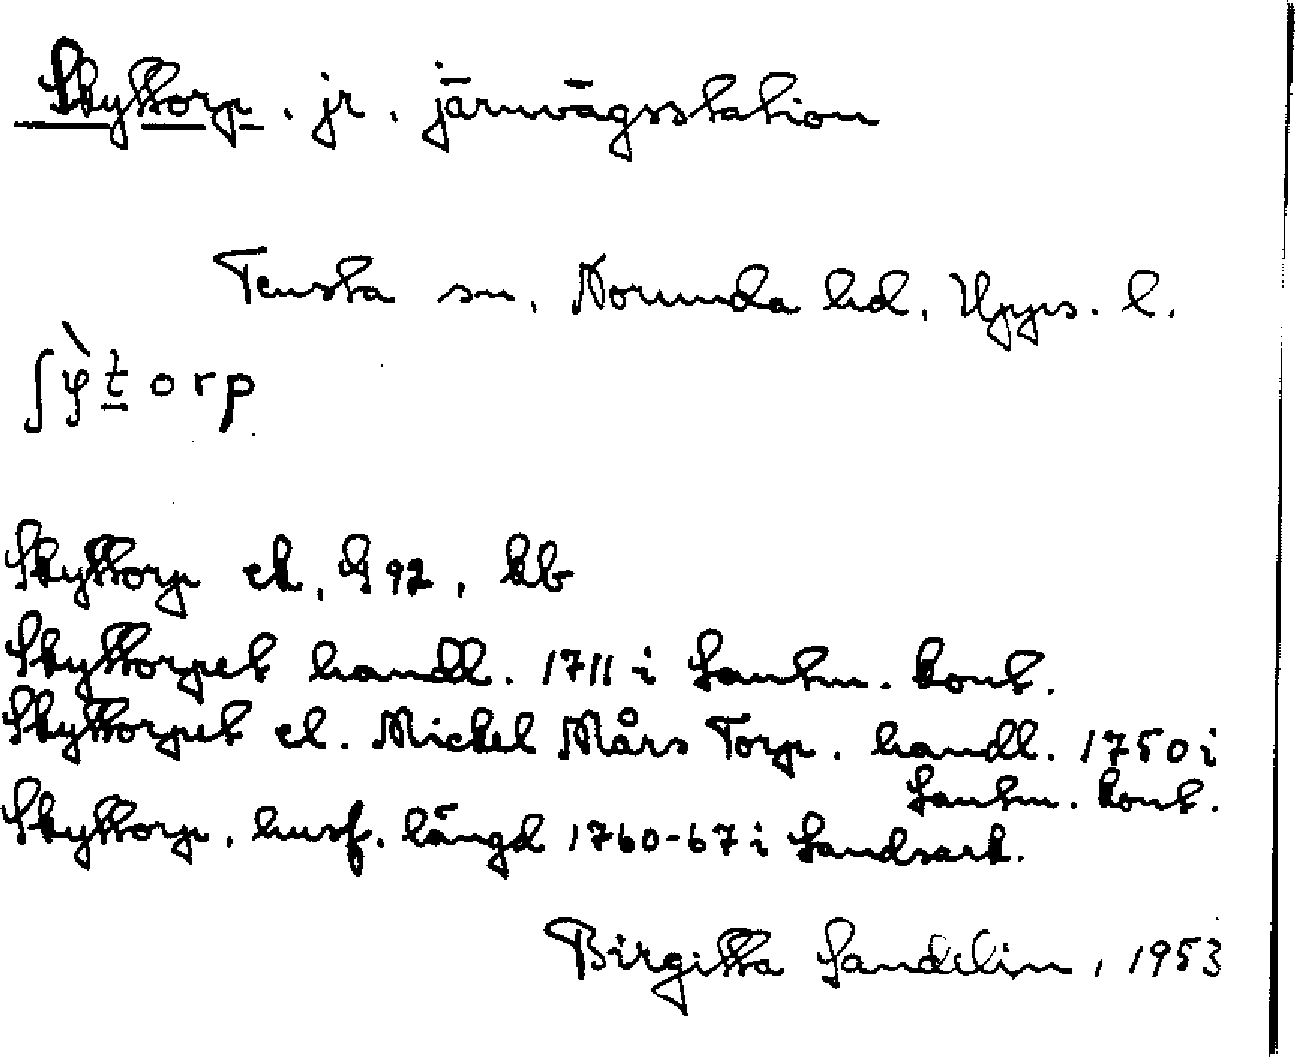 Skyttorp, jr, järnvägsstation
Tensta sn, Norunda hd, Upps. l.
ʃỳt̲orp
Skyttorp ek, G 92, kb
Skyttorpet handl. 1711 i Lantm. kont.
Skyttorpet el. Mickel Mårs Torp. handl. 1750 i
Lantm. kont.
Skyttorp, husf. längd 1760-67 i Landsark.
Birgitta Sandelin, 1953